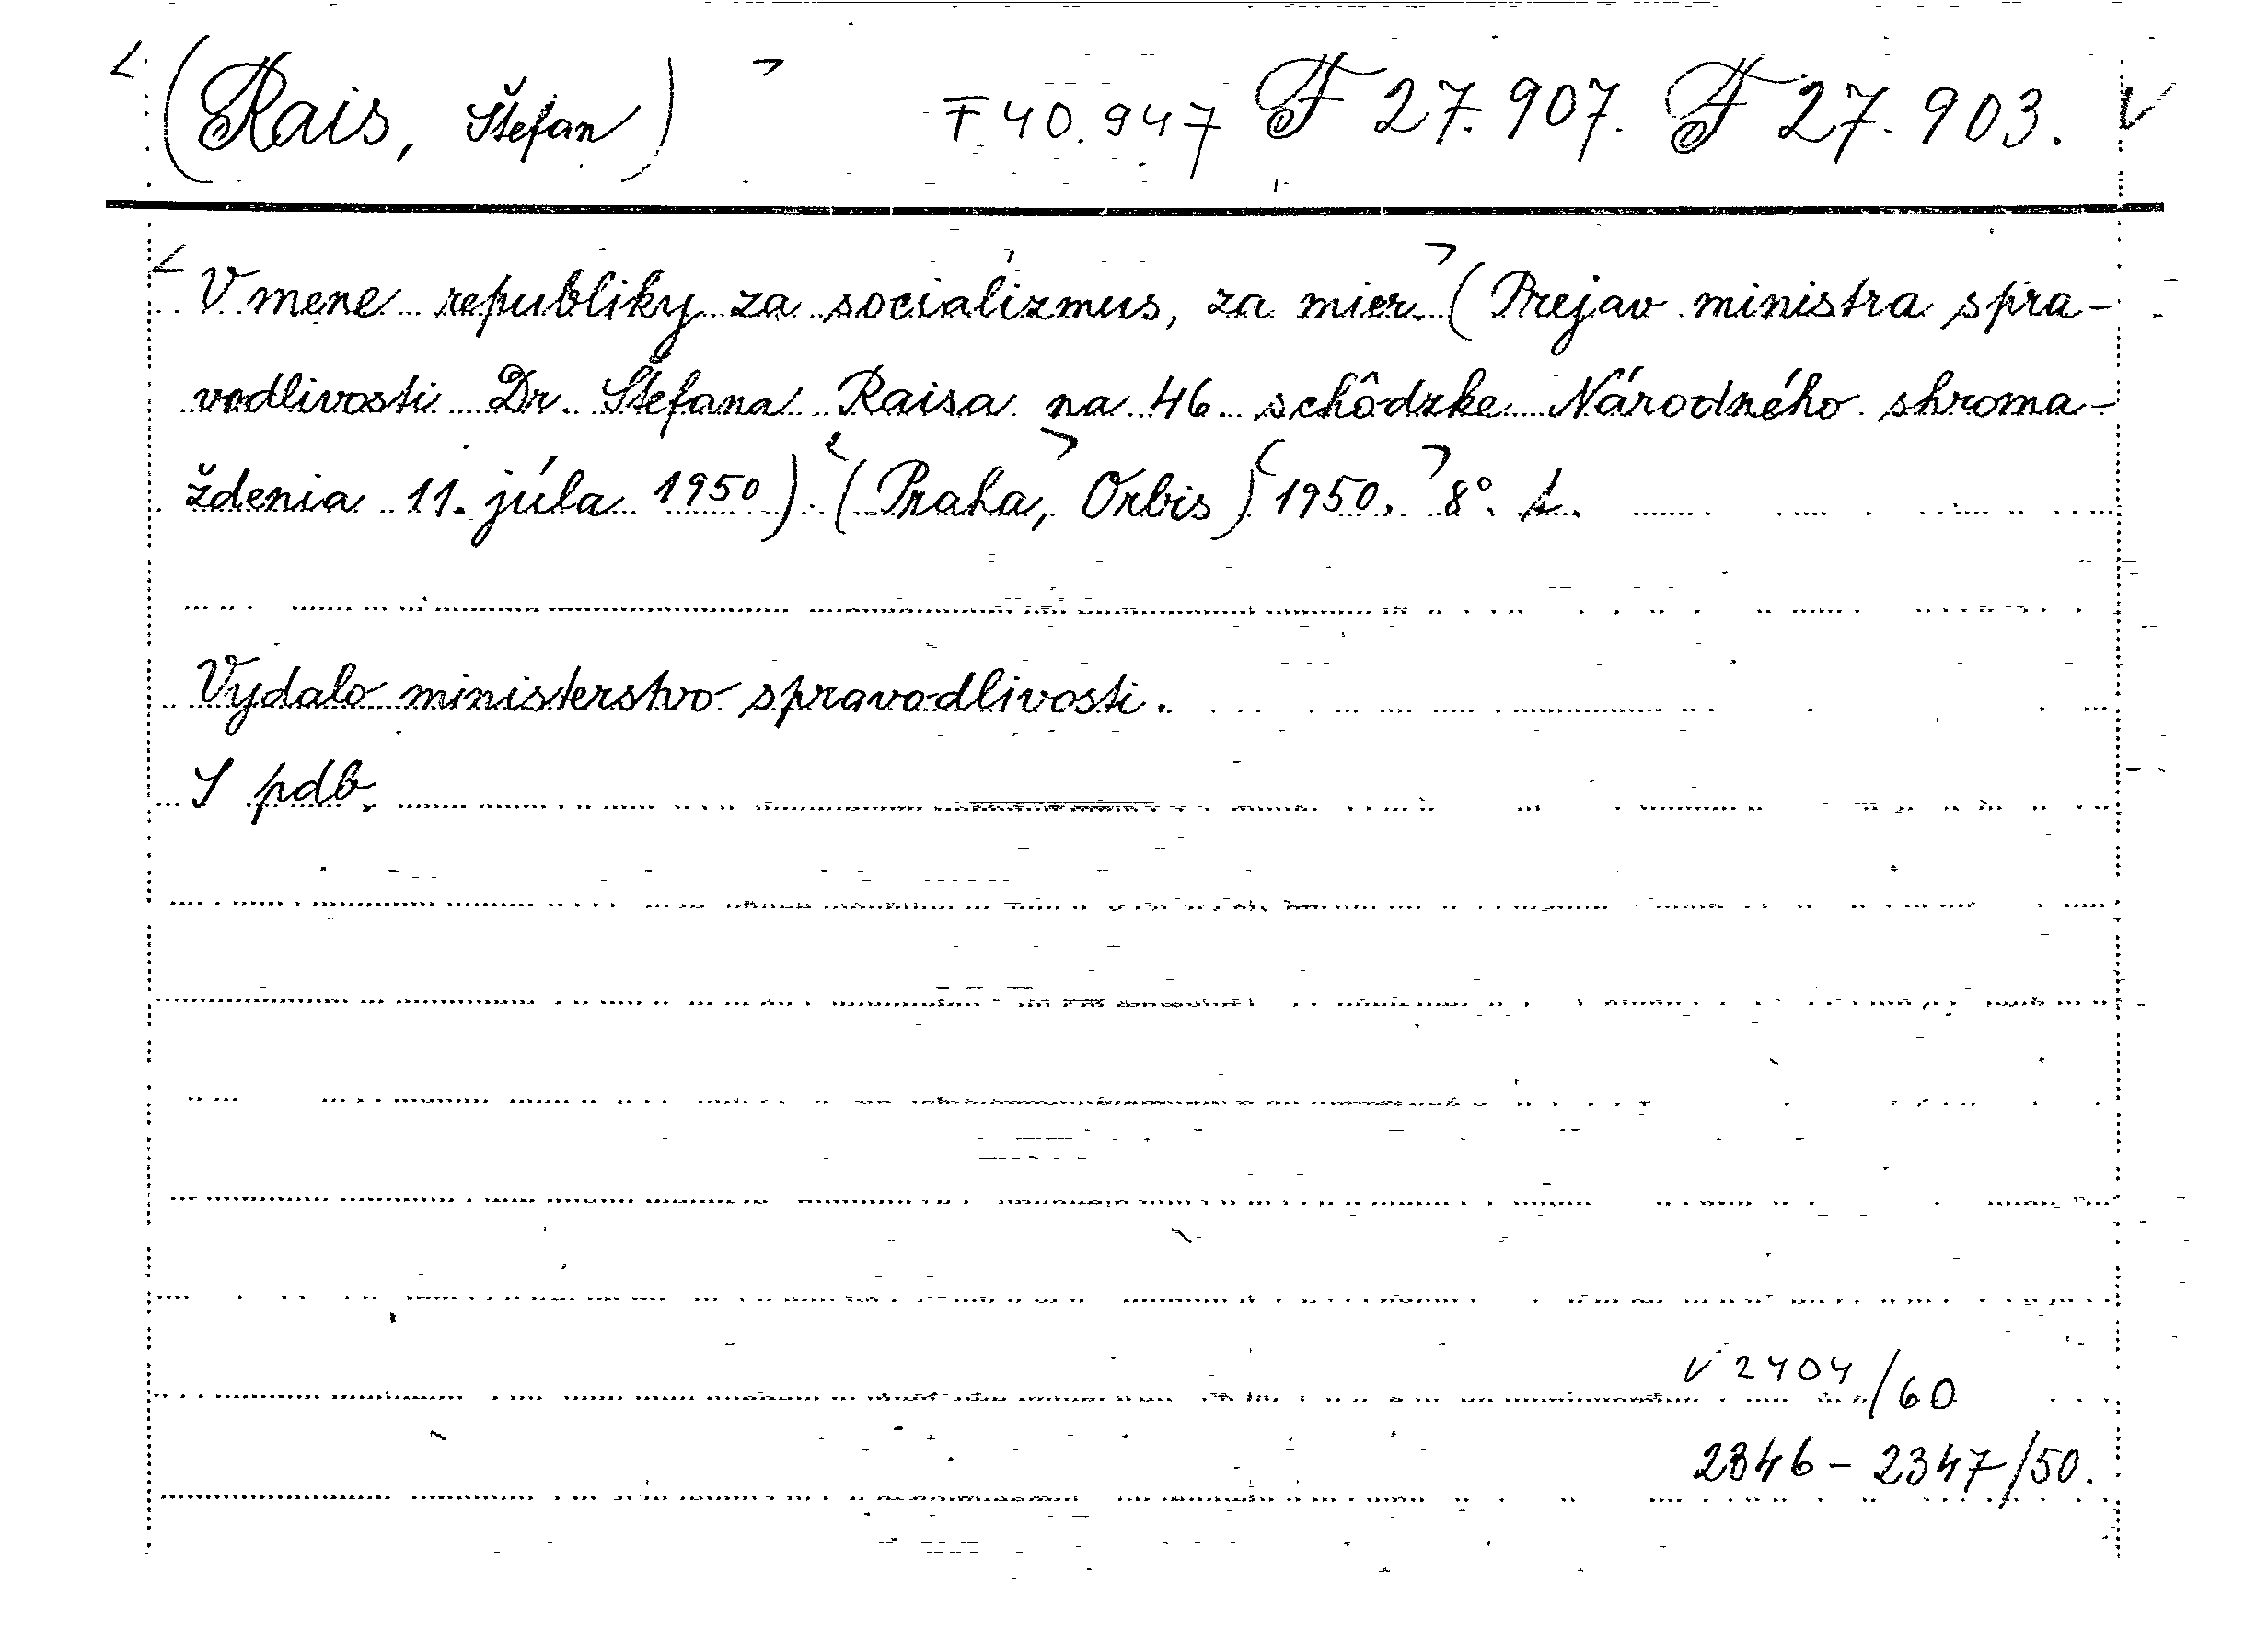 (Rais, Štefan) F 40.947 F 27.907. F 27.903. V
V mene republiky za socializmus, za mier. (Prejav ministra spra-
vodlivosti Dr. Štefana Raisa na 46. schôdzke Národného shroma-
ždenia 11. júla 1950) (Praha, Orbis) 1950. 8°.
Vydalo ministerstvo spravodlivosti.
S pdb.
V 2404/60
2346 - 2347/50.